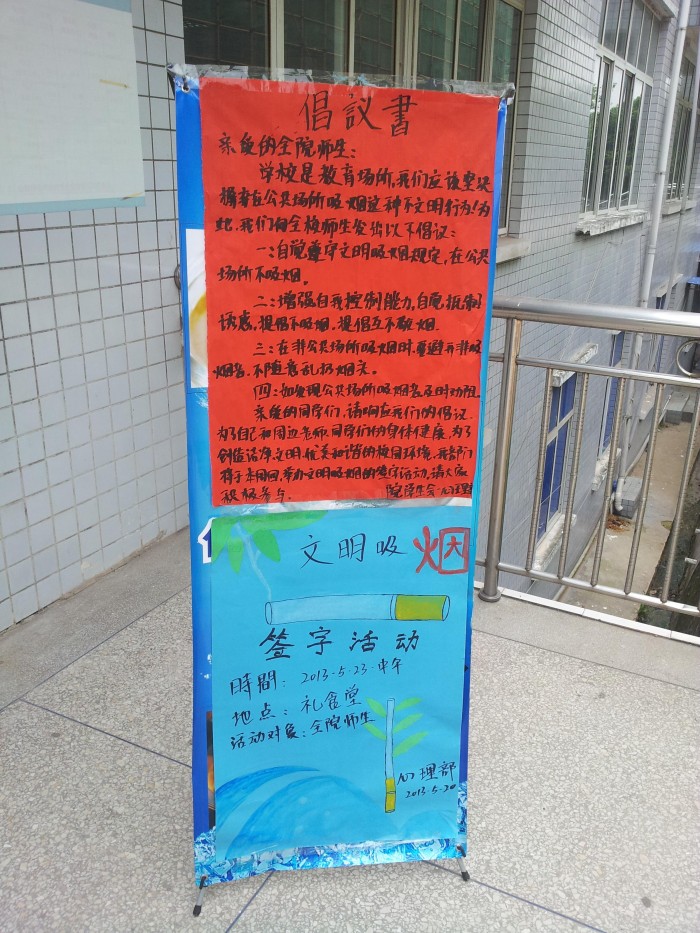 倡议书
亲爱的全院师生:
学校是教育场所,我们应该坚决
摒弃在公共场所吸烟这种不文明行为!为
此,我们向全校师生发出以下倡议:
一:自觉遵守文明吸烟规定,在公共
场所不吸烟.
二:增强自我控制能力,自觉抵制
诱惑,提倡不吸烟,提倡互不敬烟.
三:在非公共场所吸烟时,要避开非吸
烟者,不随意乱扔烟头.
四:如发现公共场所吸烟者及时劝阻
亲爱的同学们,请响应我们的倡议.
为了自己和周边老师,同学们的身体健康,为了
创造洁净文明,优美和谐的校园环境,我部门
将于本周四,举办文明吸烟的签字活动,请大家
积极参与. 院学生会·心理部
文明吸烟
签字活动
時間:2013-5-23-中午
地点:礼食堂
活动对象:全院师生
心理部
2013.5.20